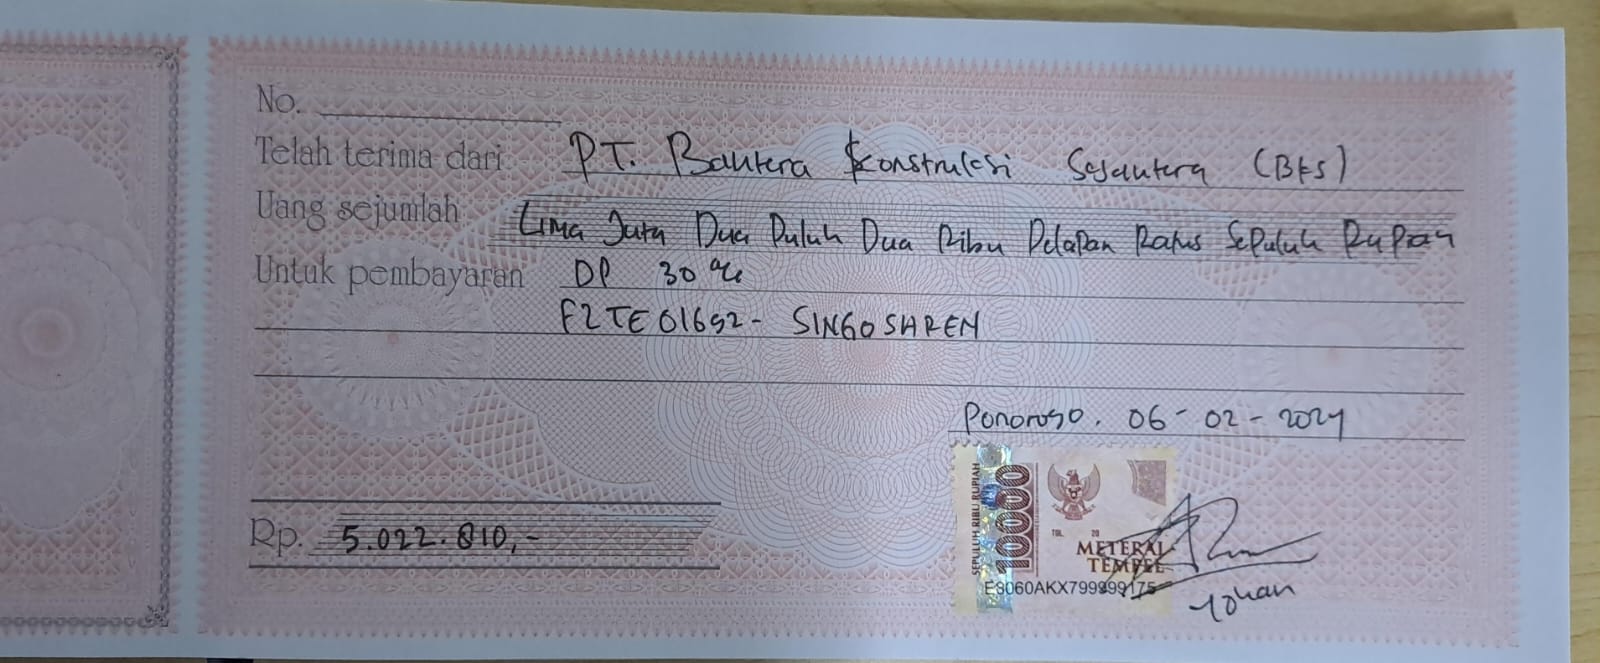 No.
Telah terima dari PT. Bautera Konstruksi Sejautera (BKS)
Uang sejumlah Lima Juta Dua Puluh Dua Ribu Delapan Ratus Sepuluh Rupiah
Untuk pembayaran DP 30 %
F2TE01692 - SINGOSAREN
Ponorogo. 06-02-2024
SEPULUH RIBU RUPIAH
10000
TGL. 20
METERAI
TEMPEL
Rp. 5.022.810,-
E3060AKX799999175
Yohan